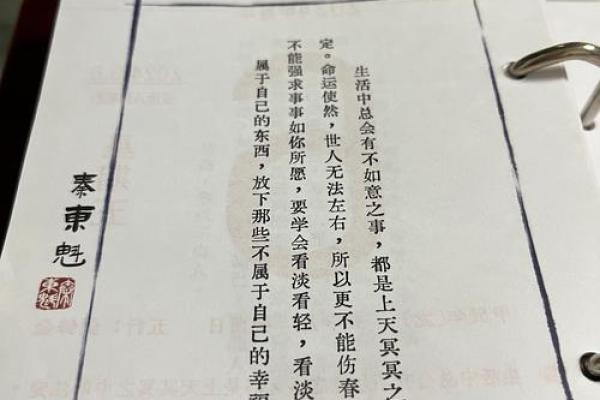 生活中总会有不如意之事，都是上天冥冥之
定。命运使然，世人无法左右，所以更不能伤春
不能强求事事如你所愿，要学会看淡看轻，看淡
属于自己的东西，放下那些不属于自己的幸
秦東魁